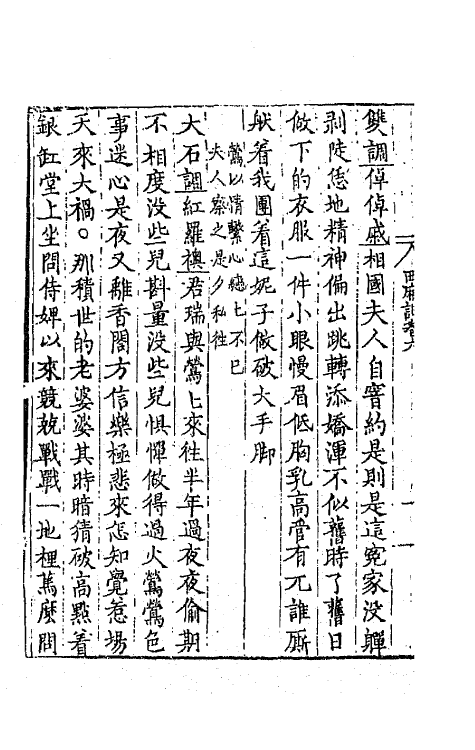 西廂記卷六
雙調倬倬戚相國夫人自窨約是則是這冤家没亸
剥陡恁地精神偏出跳轉添嬌渾不似舊時了舊日
做下的衣服一件小眼慢眉低胸乳高管有兀誰厮
般着我團着這妮子做破大手脚
鶯以情繫心戀七不已
夫人察之是夕私往
大石調紅羅襖君瑞與鶯匕來往半年過夜夜偷期
不相度没些兒斟量没些兒惧憚做得過火鶯鶯色
事迷心是夜又離香閣方信樂極悲來怎知覺惹塲
天來大禍〇那積世的老婆婆其時暗猜破高㸃着
銀缸堂上坐問侍婢以來兢兢戰戰一地裡篤麽問